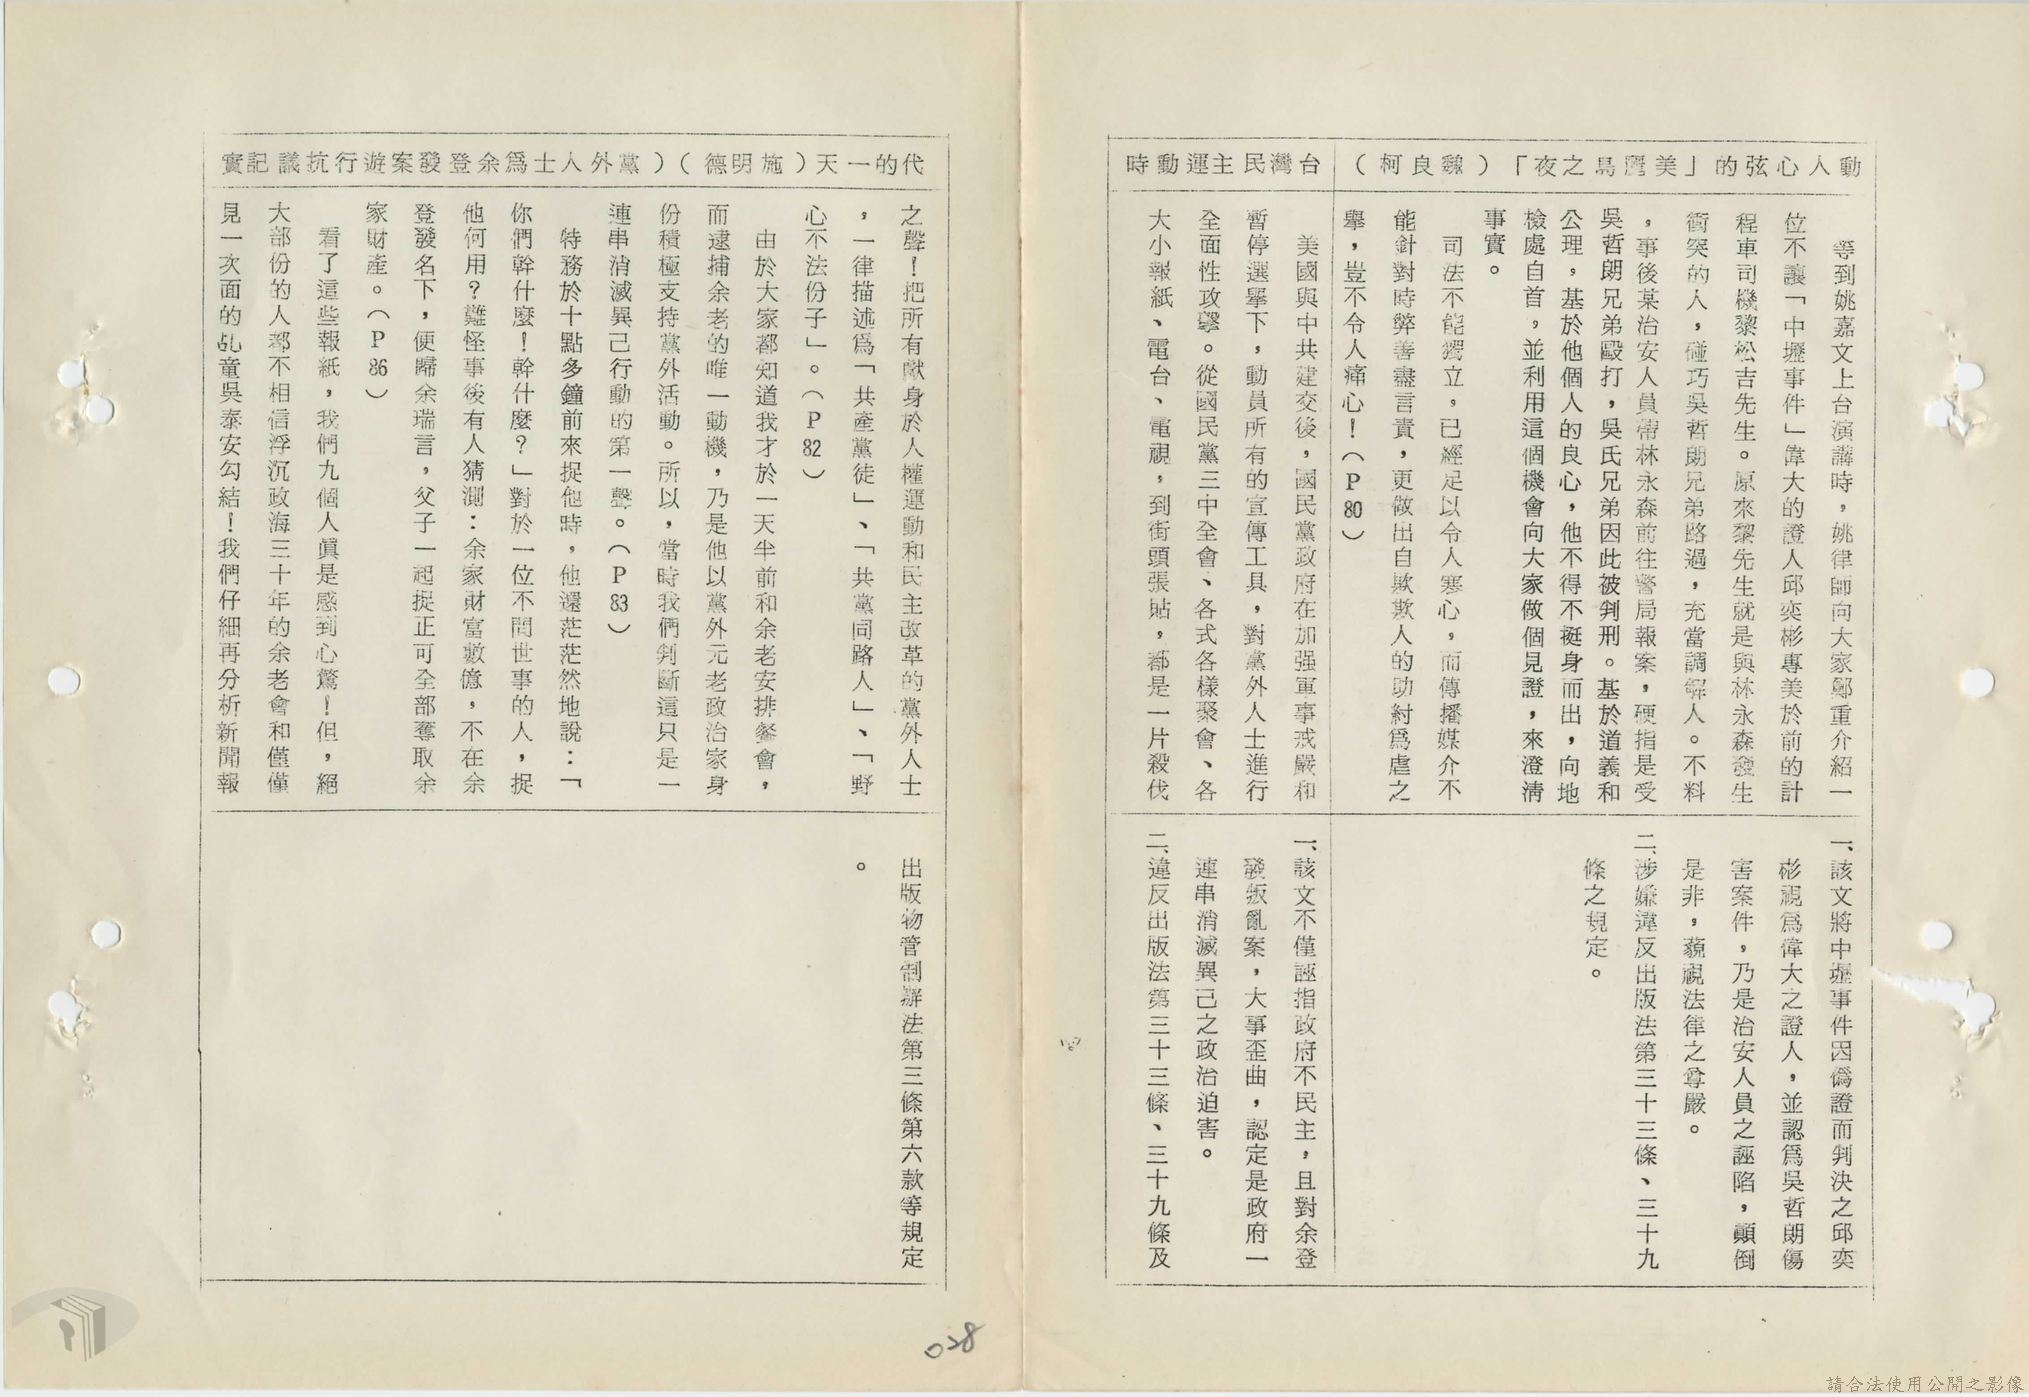 動人心弦的「美麗島之夜」（魏良柯）
等到姚嘉文上台演講時，姚律師向大家鄭重介紹一
位不讓「中壢事件」偉大的證人邱奕彬專美於前的計
程車司機黎松吉先生。原來黎先生就是與林永森發生
衝突的人，碰巧吳哲朗兄弟路過，充當調解人。不料
，事後某治安人員帶林永森前往警局報案，硬指是受
吳哲朗兄弟毆打，吳氏兄弟因此被判刑。基於道義和
公理，基於他個人的良心，他不得不挺身而出，向地
檢處自首，並利用這個機會向大家做個見證，來澄清
事實。
司法不能獨立，已經足以令人寒心，而傳播媒介不
能針對時弊善盡言責，更做出自欺欺人的助紂為虐之
舉，豈不令人痛心！（P80）
一、該文將中壢事件因偽證而判決之邱奕
彬視為偉大之證人，並認為吳哲朗傷
害案件，乃是治安人員之誣陷，顛倒
是非，藐視法律之尊嚴。
二、涉嫌違反出版法第三十三條、三十九
條之規定。
台灣民主運動時
美國與中共建交後，國民黨政府在加强軍事戒嚴和
暫停選舉下，動員所有的宣傳工具，對黨外人士進行
全面性攻擊。從國民黨三中全會、各式各樣聚會、各
大小報紙、電台、電視，到街頭張貼，都是一片殺伐
一、該文不僅誣指政府不民主，且對余登
發叛亂案，大事歪曲，認定是政府一
連串消滅異己之政治迫害。
二、違反出版法第三十三條、三十九條及
代的一天（施明德）（黨外人士為余登發案遊行抗議記實
之聲！把所有獻身於人權運動和民主改革的黨外人士
，一律描述為「共產黨徒」、「共黨同路人」、「野
心不法份子」。（P82）
由於大家都知道我才於一天半前和余老安排餐會，
而逮捕余老的唯一動機，乃是他以黨外元老政治家身
份積極支持黨外活動。所以，當時我們判斷這只是一
連串消滅異己行動的第一聲。（P83）
特務於十點多鐘前來捉他時，他還茫茫然地說：「
你們幹什麼！幹什麼？」對於一位不問世事的人，捉
他何用？難怪事後有人猜測：余家財富數億，不在余
登發名下，便歸余瑞言，父子一起捉正可全部奪取余
家財產。（P86）
看了這些報紙，我們九個人眞是感到心驚！但，絕
大部份的人都不相信浮沉政海三十年的余老會和僅僅
見一次面的乩童吳泰安勾結！我們仔細再分析新聞報
出版物管制辦法第三條第六款等規定
。
028
請合法使用公開之影像